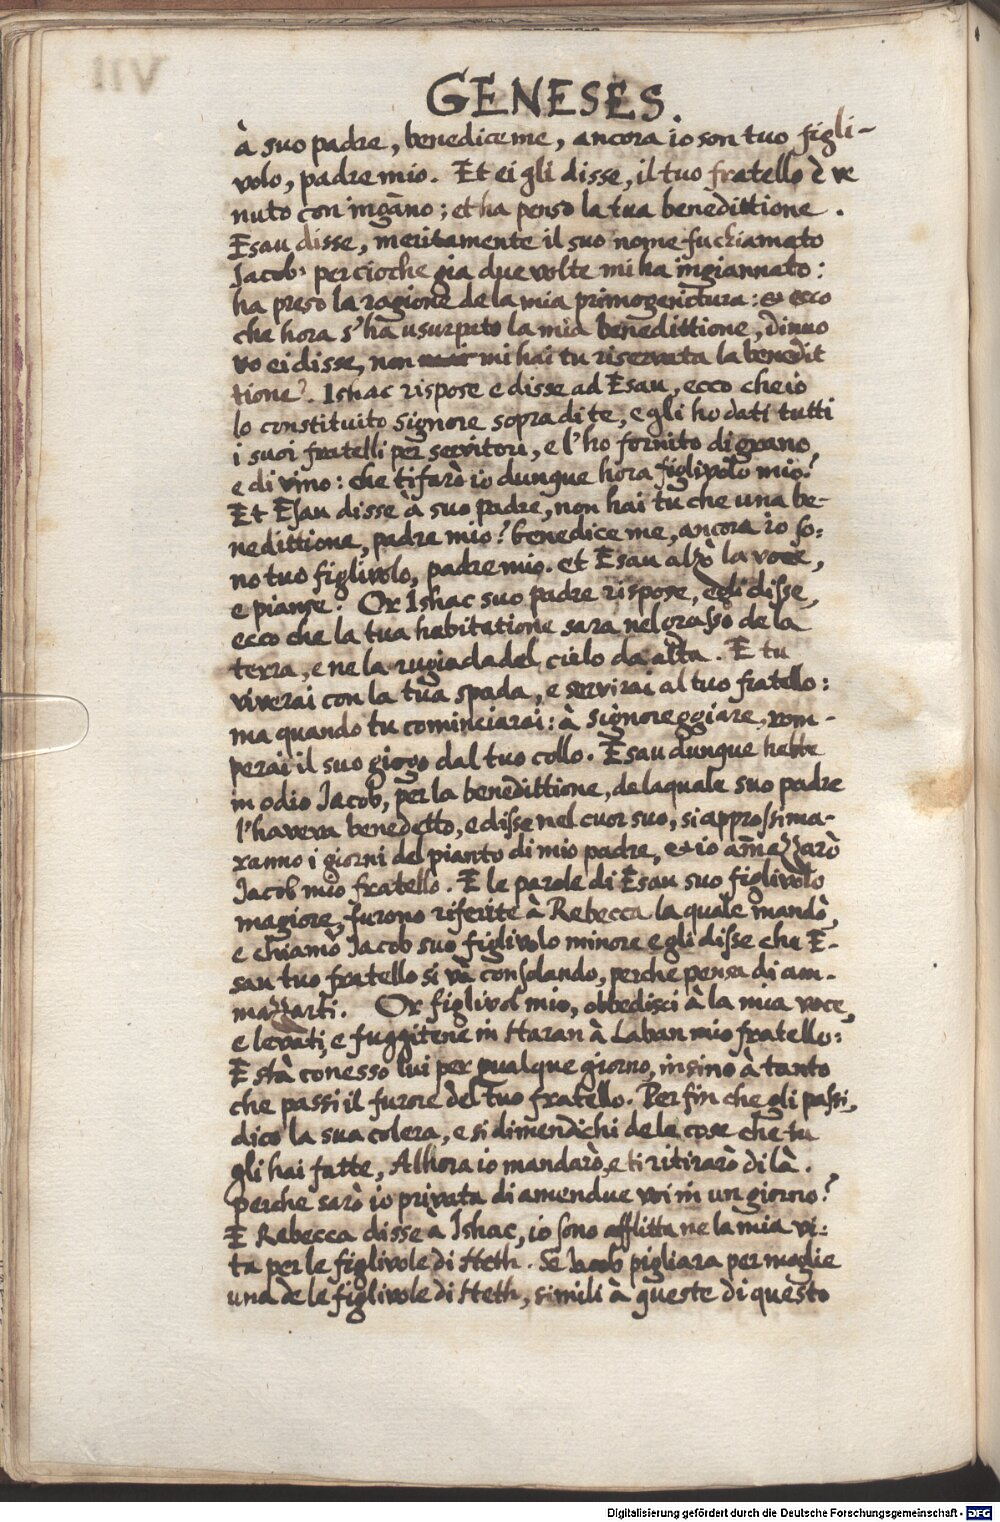 GENESES.
à suo padre, benediceme, ancora io son tuo figli-
volo, padre mio. Et ei gli disse, il tuo fratello è ve
nuto con ingāno; et ha penso la tua benedittione.
Esau disse, meritamente il suo nome fu chiamato
Jacob, percioche gia due volte mi ha ingiannato:
ha preso la ragione de la mia primogenitura: et ecco
che hora s'ha usurpato la mia benedittione, dinuo
vo ei disse, non mi hai tu riservata la benedit
tione?. Ishac rispose e disse ad Esau, ecco che io
lo constituito Signore sopra di te, e gli ho dati tutti
i suoi fratelli per servitori, e l'ho fornito di grano,
e di vino: che ti farò io dunque hora figlivolo mio?
Et Esau disse à suo padre, non hai tu che una be-
nedittione, padre mio? benedice me, ancora io so:
no tuo figlivolo, padre mio. et Esau alzò la voce,
e pianse. Or Ishac suo padre rispose, e gli disse,
ecco che la tua habitatione sara nel grasso de la
terra, e ne la rugiada del cielo da alta. E tu
viverai con la tua spada, e servirai al tuo fratello:
ma quando tu cominciarai: à signoreggiare, rom-
perai il suo giogo dal tuo collo. Esau dunque hebbe
in odio Jacob, per la benedittione, de laquale suo padre
l'haveva benedetto, e disse nel cuor suo, si approssima-
ranno i giorni del pianto di mio padre, et io am̄azzarò
Jacob mio fratello. E le parole di Esau suo figlivolo
magiore, furono riferite à Rebecca la quale mandò,
e chiamò Jacob suo figlivolo minore e gli disse che E-
sau tuo fratello si và consolando, perche pensa di am-
mazzarti. Or figlivol mio, obbedisci à la mia voce,
e levati, e fuggitene in Haran à Laban mio fratello:
E stà conesso lui per qualque giorno, insino à tanto
che passi il furore del tuo fratello. Per fin che gli passi,
dico la sua colera, e si dimendichi de le cose che tu
gli hai fatte, Alhora io mandarò, e ti ritirarò di là.
perche sarò io privata di amendue voi in un giorno?
E Rebecca disse à Ishac, io sono afflitta ne la mia vi:
ta per le figlivole di Heth. Se Jacob pigliara per moglie
una de le figlivole di Heth, simili à queste di questo
Digitalisierung gefördert durch die Deutsche Forschungsgemeinschaft - DFG